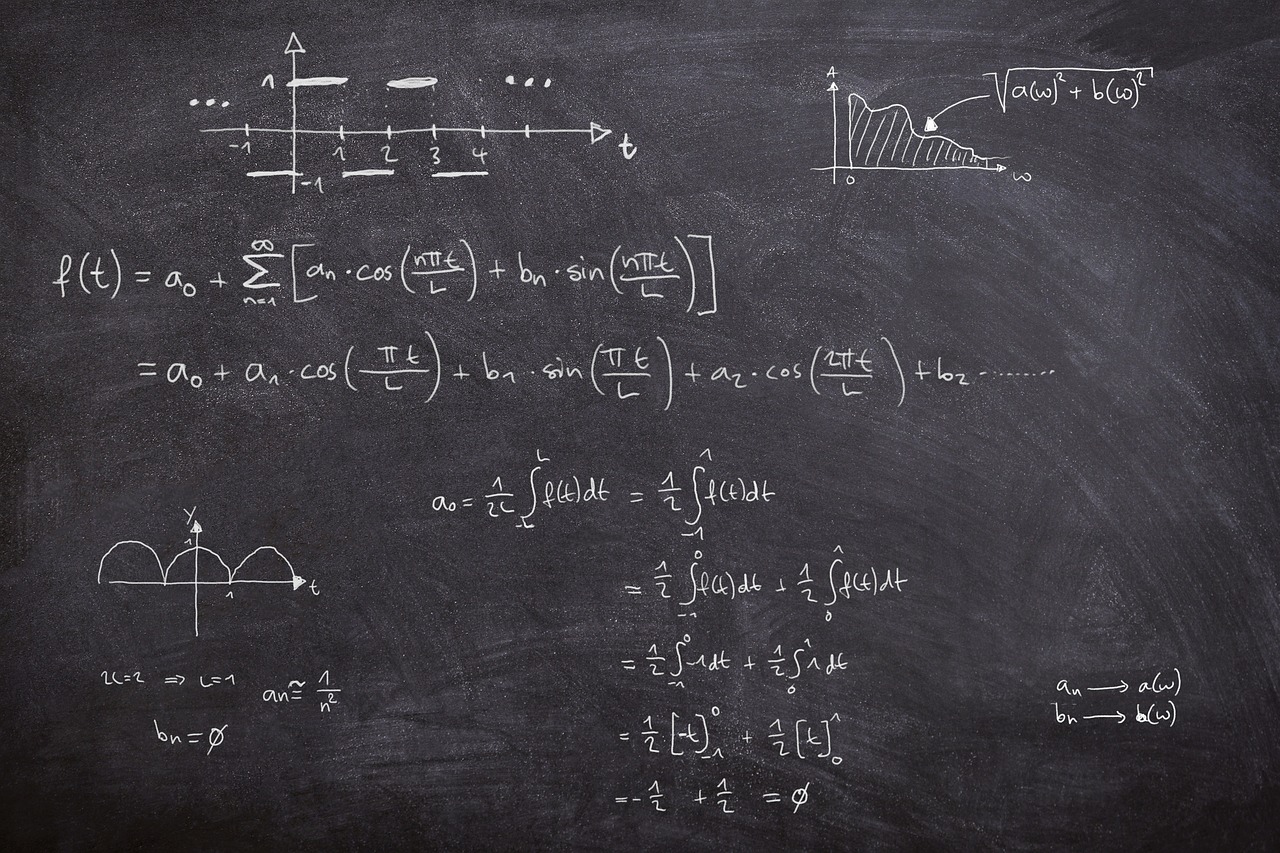 1
...
...
-1 1 2 3 4 t
-1
A
√(a(ω)² + b(ω)²)
0 ω
f(t) = a₀ + ∑_{n=1}^{∞} [aₙ · cos(nπt/L) + bₙ · sin(nπt/L)]
= a₀ + a₁ · cos(πt/L) + b₁ · sin(πt/L) + a₂ · cos(2πt/L) + b₂ ········
a₀ = 1/2L ∫_{-L}^{L} f(t)dt = 1/2 ∫_{-1}^{1} f(t)dt
= 1/2 ∫_{-1}^{0} f(t)dt + 1/2 ∫_{0}^{1} f(t)dt
= 1/2 ∫_{-1}^{0} -1dt + 1/2 ∫_{0}^{1} 1dt
= 1/2 [-t]_{-1}^{0} + 1/2 [t]_{0}^{1}
= -1/2 + 1/2 = ∅
y
1
1 t
2L=2 ⇒ L=1
aₙ ≅ 1/n²
bₙ = ∅
aₙ → a(ω)
bₙ → b(ω)